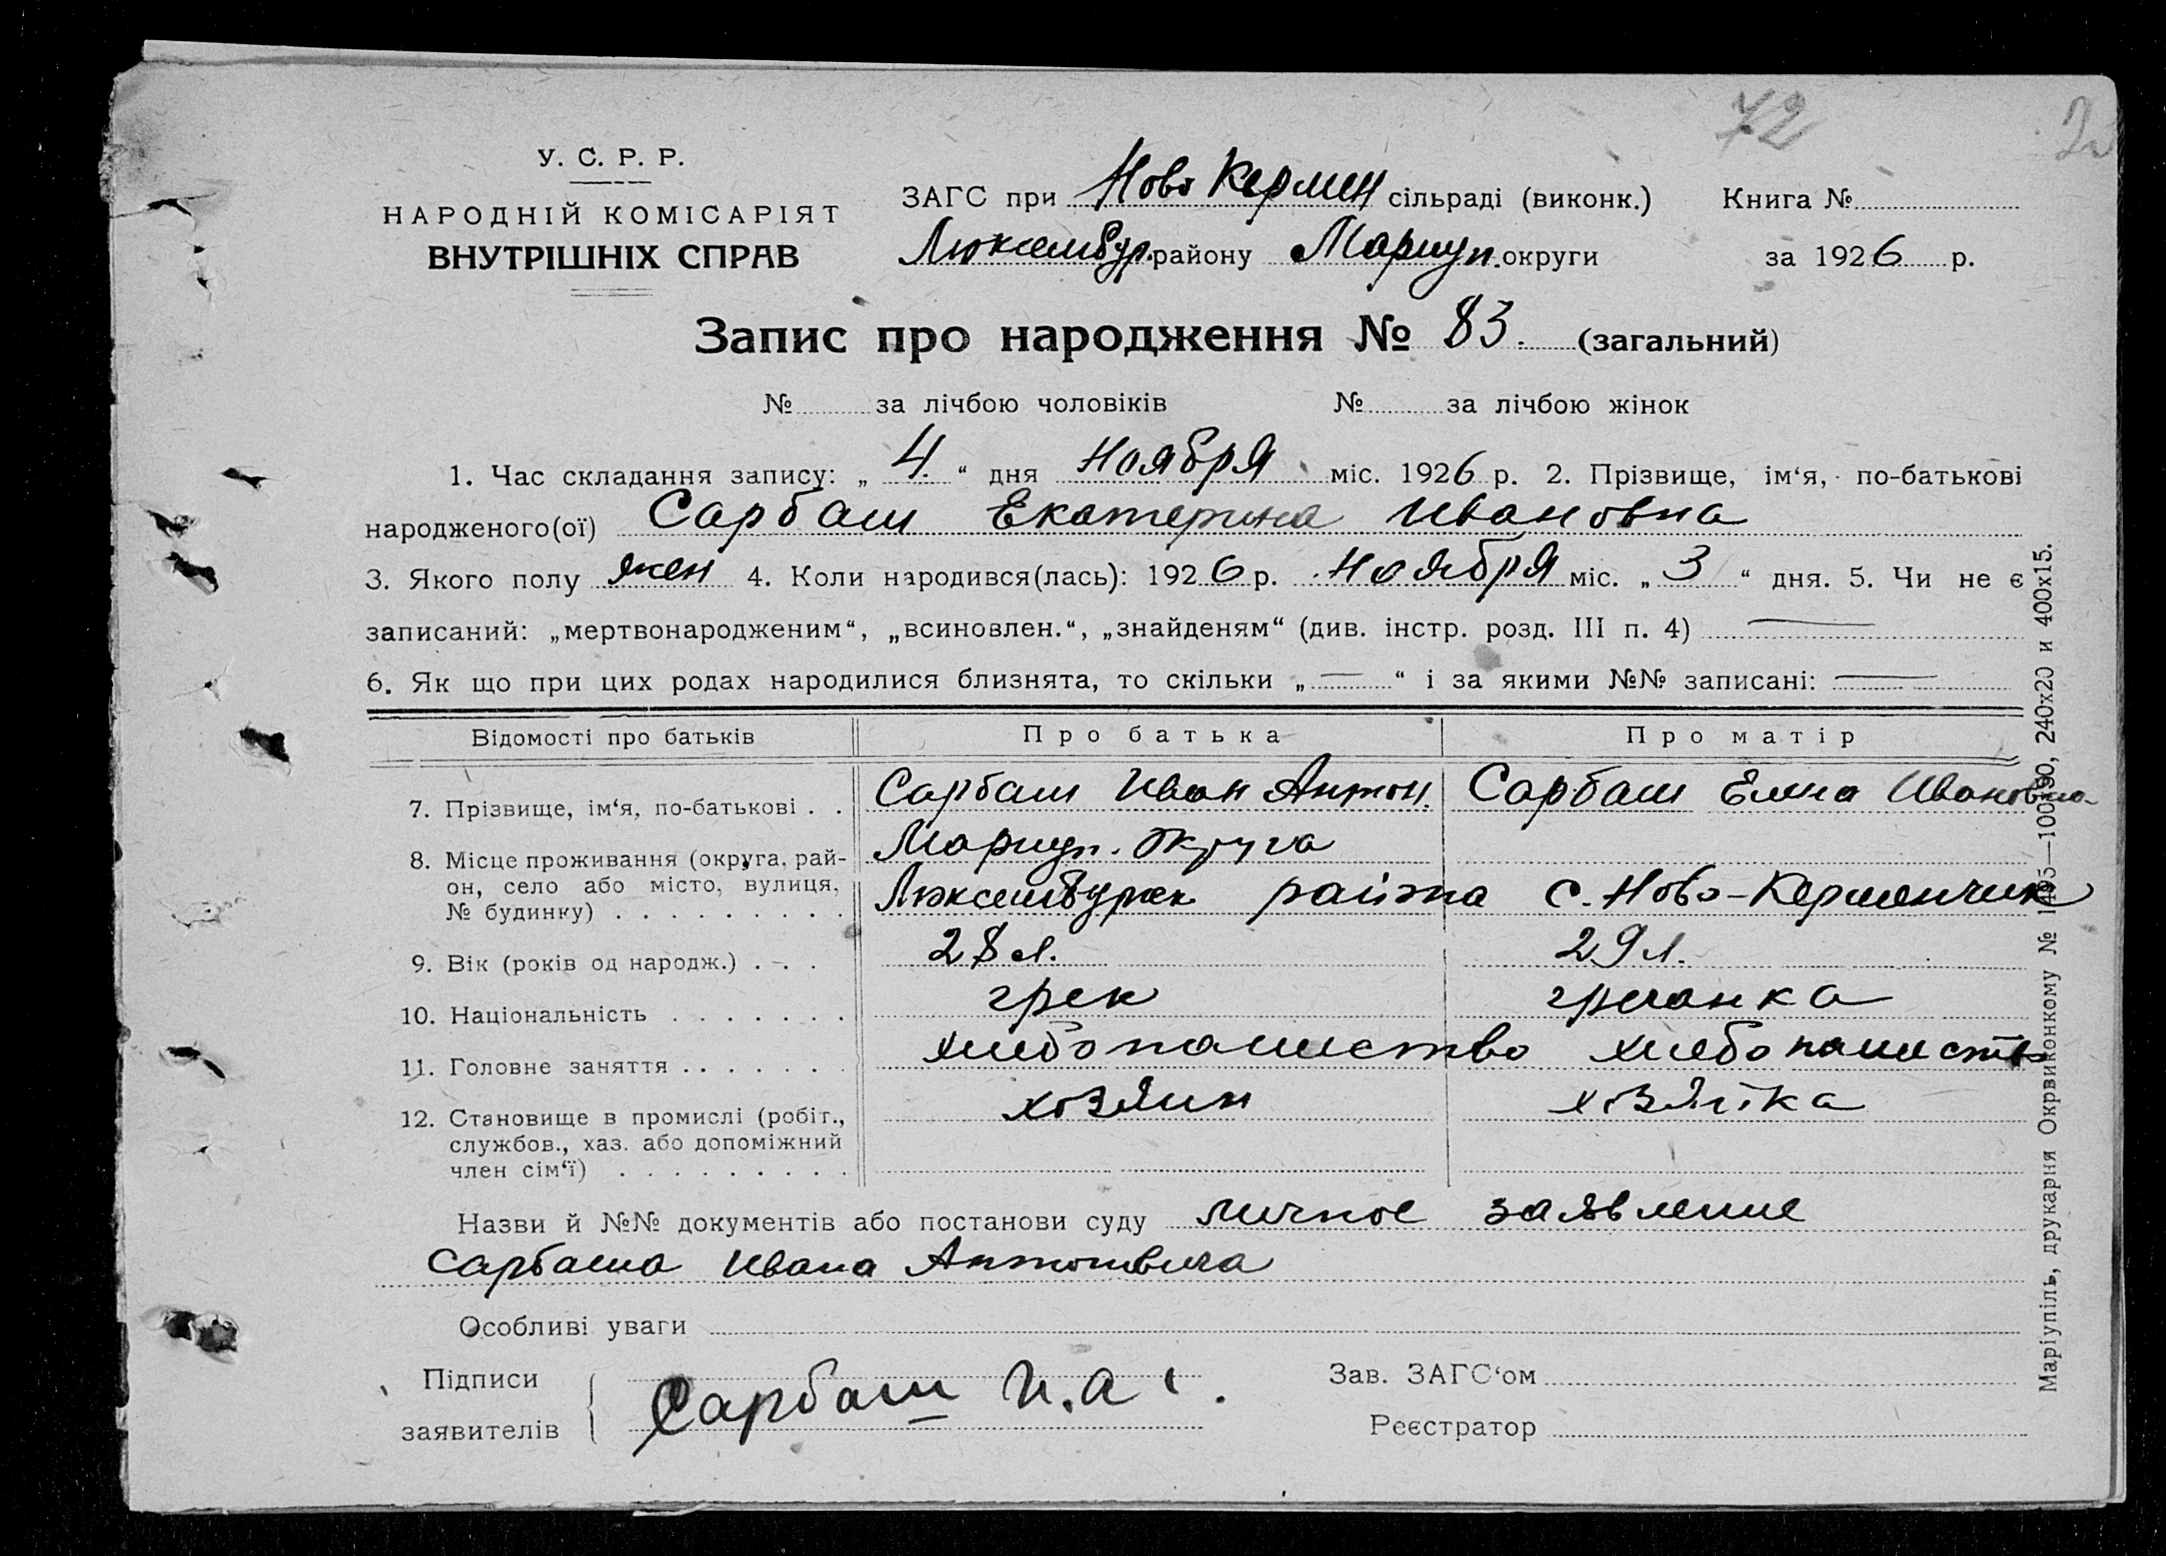 72
У. С. Р. Р.
НАРОДНІЙ КОМІСАРІЯТ
ВНУТРІШНІХ СПРАВ
ЗАГС при Ново Кермен сільраді (виконк.) Книга №
Люксембур. району Мариуп. округи за 1926 р.
Запис про народження № 83. (загальний)
№ за лічбою чоловіків № за лічбою жінок
1. Час складання запису: „ 4 “ дня Ноября міс. 1926 р. 2. Прізвище, ім‘я, по-батькові
народженого(ої) Сарбаш Екатерина Ивановна
3. Якого полу жен 4. Коли народився(лась): 1926 р. Ноября міс. „ 3 “ дня. 5. Чи не є
записаний: „мертвонародженим“, „всиновлен.“, „знайденям“ (див. інстр. розд. III п. 4) —
6. Як що при цих родах народилися близнята, то скільки „ — “ і за якими №№ записані: —
Відомості про батьків Про батька Про матір
7. Прізвище, ім‘я, по-батькові . . Сарбаш Иван Антон. Сарбаш Елена Ивановна
8. Місце проживання (округа, рай- Мариуп. Округа
он, село або місто, вулиця, Люксембургск района с. Ново-Керменчик
№ будинку) . . . . . . . . .
9. Вік (років од народж.) . . . 28 л. 29 л.
10. Національність . . . . . . . грек гречанка
11. Головне заняття . . . . . . . хлебопашество хлебопашеств
12. Становище в промислі (робіт., хозяин хозяйка
службов., хаз. або допоміжний
член сім‘ї) . . . . . . . . .
Назви й №№ документів або постанови суду личное заявление
Сарбаша Ивана Антоновича
Особливі уваги
Підписи Зав. ЗАГС‘ом
заявителів Сарбаш И.А. Реєстратор
Маріупіль, друкарня Окрвиконкому № 1495—100×90, 240х20 и 400х15.